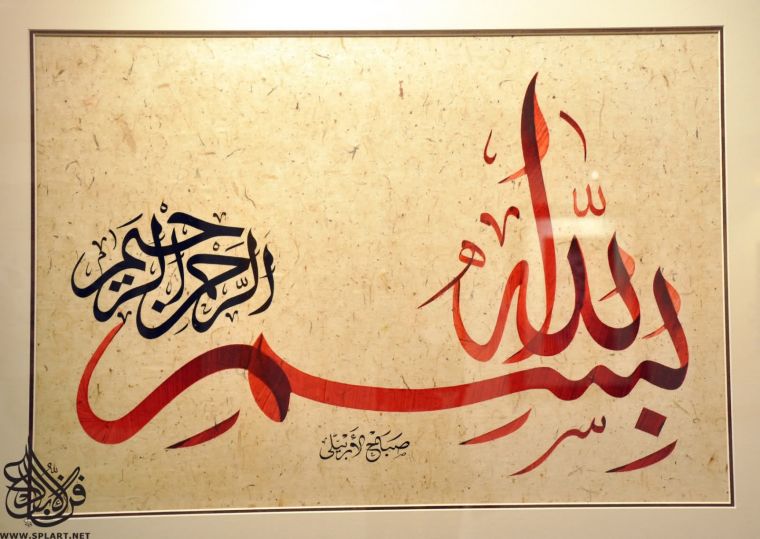 بسم الله
الرحمن الرحيم
صباح الأربيلي
WWW.SPLART.NET